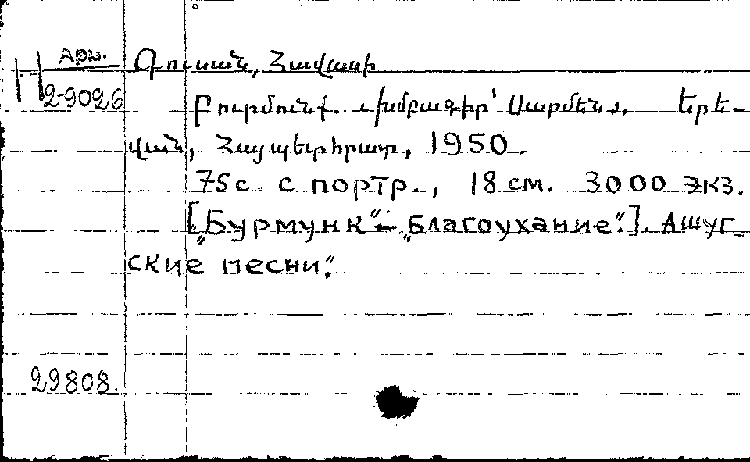 Арм.
Գուսան, Հավասի
Н
2-9026
Բուրմունք. Խմբագիր՝ Սարմեն. Երե-
վան, Հայպետհրատ, 1950.
75 с. с портр., 18 см. 3000 экз.
[„Бурмунк“ – „Благоухание“.]. Ашуг-
ские песни“.
29808.